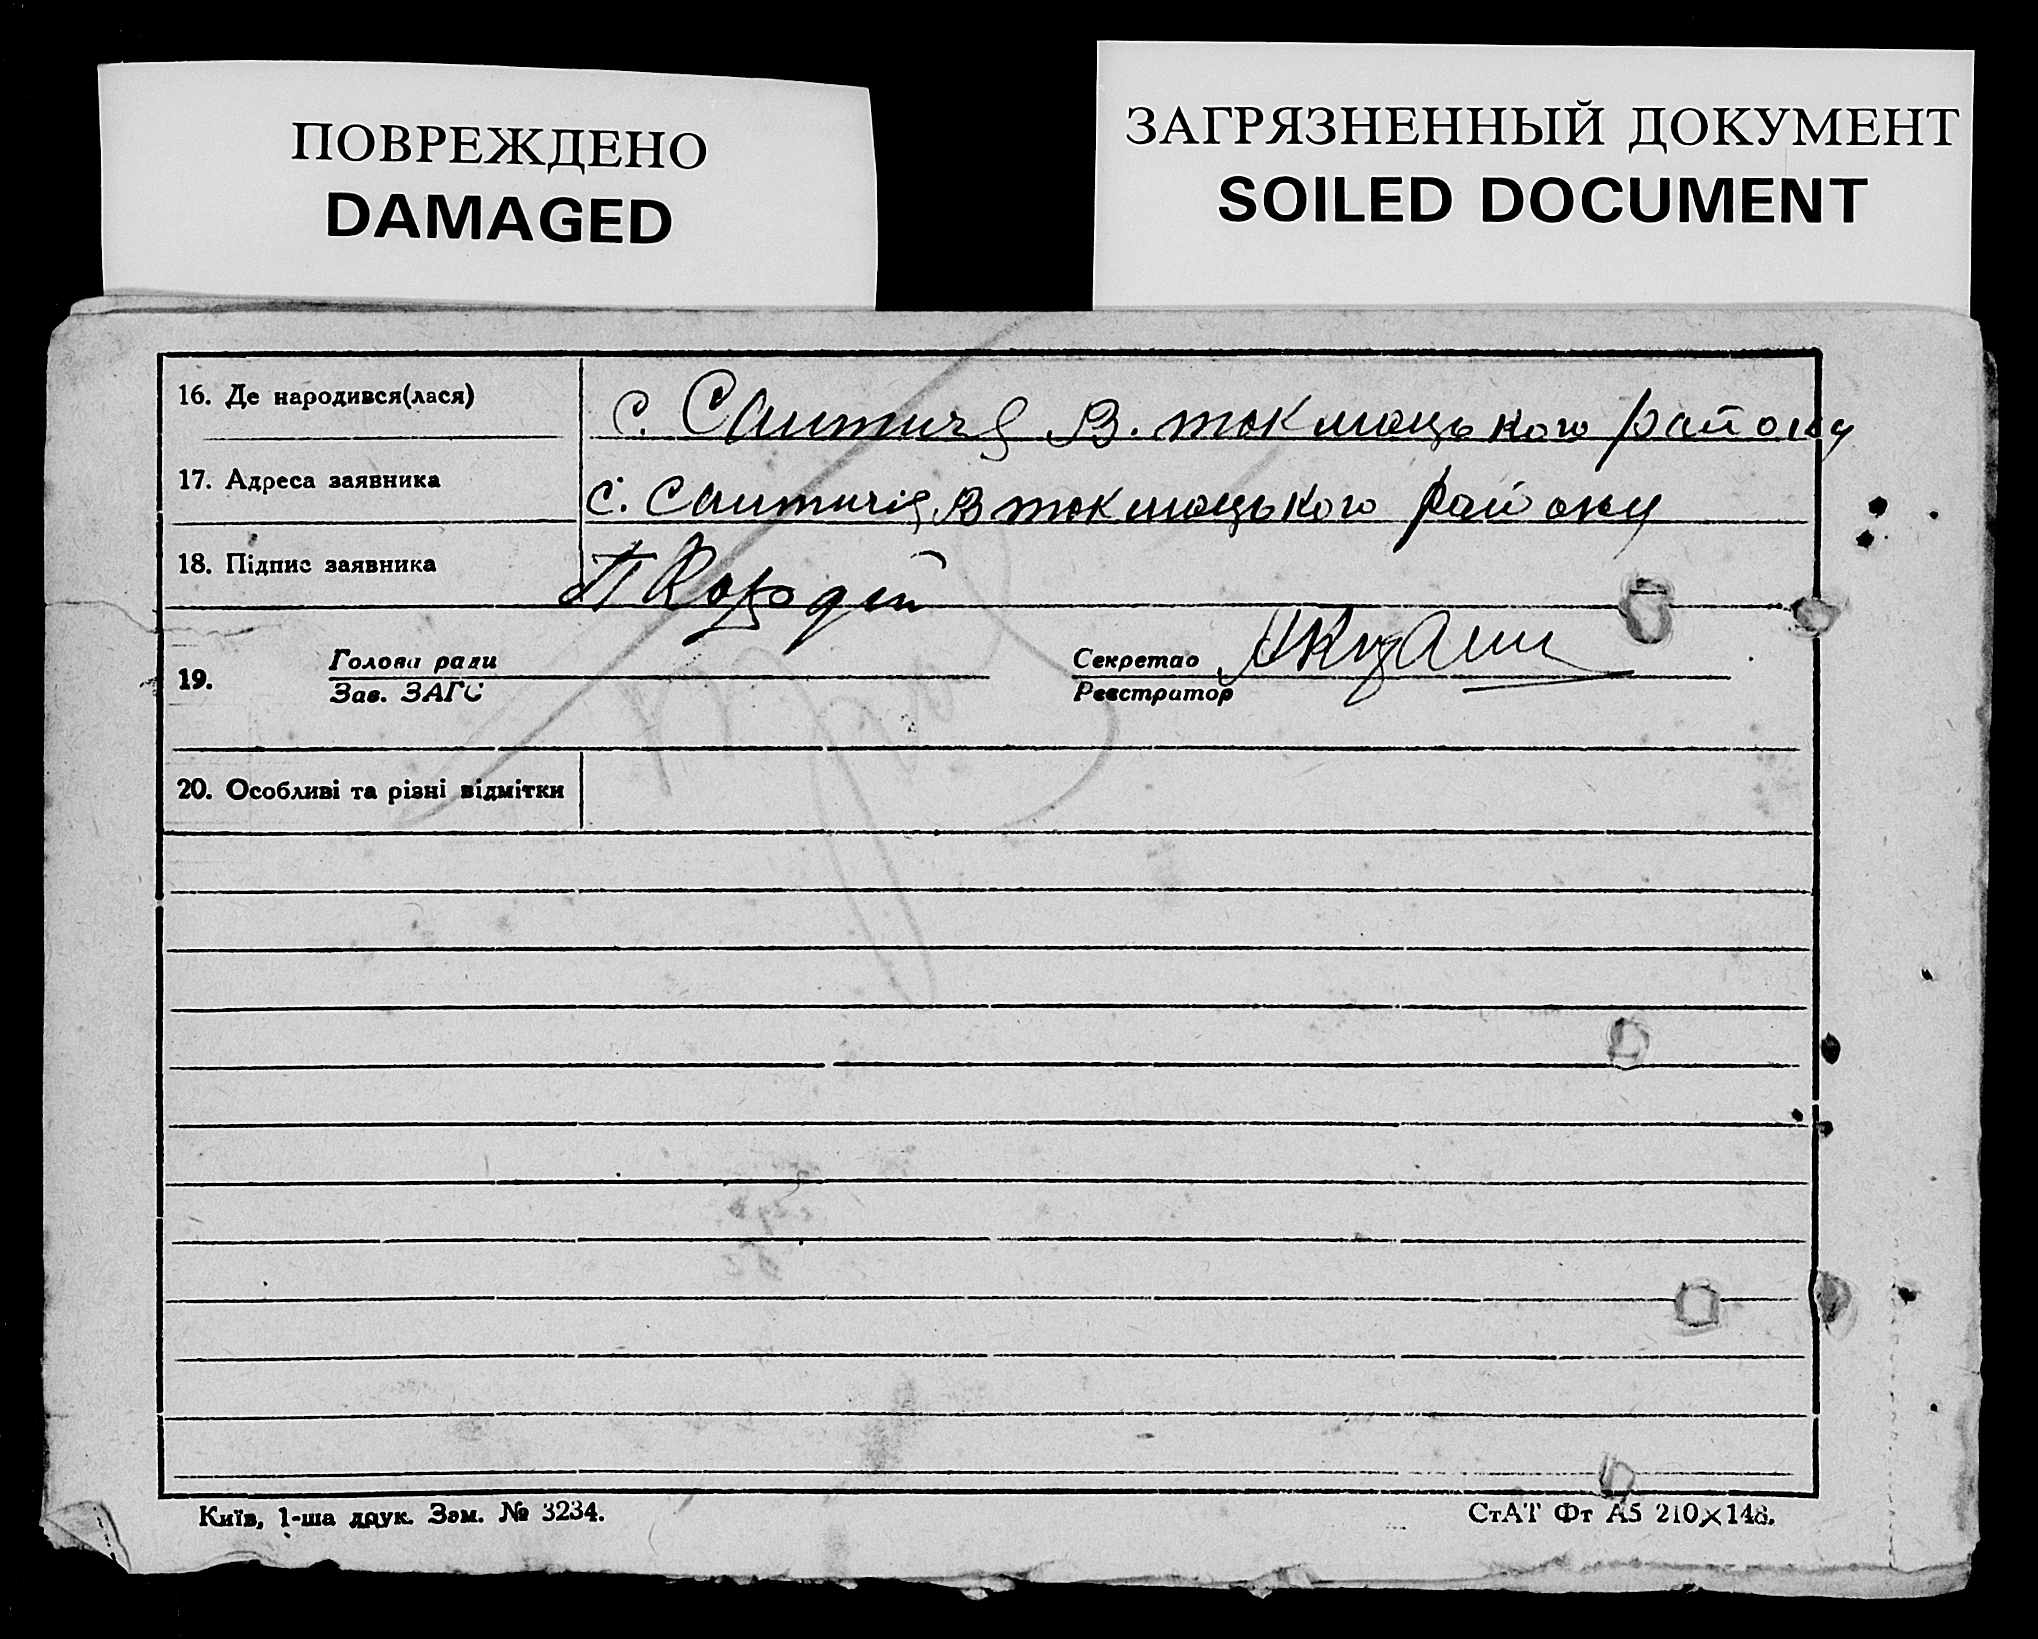 ПОВРЕЖДЕНО
DAMAGED
ЗАГРЯЗНЕННЫЙ ДОКУМЕНТ
SOILED DOCUMENT
16. Де народився(лася)
с. В. токмацького району
17. Адреса заявника
с. В токмацького району
18. Підпис заявника
П
19.
Голова ради
Зав. ЗАГС
Секретар
Реєстратор
20. Особливі та різні відмітки
Київ, 1-ша друк. Зам. № 3234.
СтАТ Фт А5 210×148.